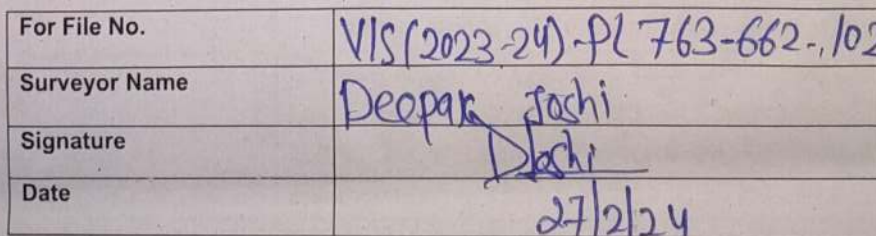 For File No. VIS(2023-24)-PL 763-662-,102
Surveyor Name Deepak Joshi
Signature DJoshi
Date 27/2/24